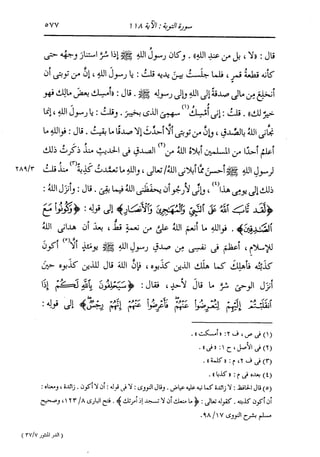 سورة التوبة : الآية ١١٨
٥٧٧
قال : «لا ، بل من عند اللهِ» . وكان رسولُ اللهِ ﷺ إذا سُرَّ استنار وجهُه حتى
كأنه قطعةُ قمرٍ ، فلما جلستُ بينَ يديه قلتُ : يا رسولَ اللهِ ، إنَّ من توبتى أن
أنخلِعَ من مالى صدقةً إلى اللهِ وإلى رسولِه ﷺ . قال : «أَمسِكْ بعضَ مالِك فهو
خيرٌ لك» . قلتُ : إنى أُمسِكُ(١) سهمىَ الذى بخيبرَ . وقلتُ : يا رسولَ اللهِ ، إنما
نجانى اللهُ بالصدقِ ، وإنَّ من توبتى ألَّا أُحدِّثَ إلا صدقًا ما بقيتُ . قال : فواللهِ ما
أعلمُ أحدًا من المسلمين أبلاه اللهُ من(٢) الصدقِ فى الحديثِ منذُ ذكرتُ ذلك
لرسولِ اللهِ ﷺ أحسنَ مما أبلانى اللهُ تعالى ، واللهِ ما تعمَّدتُ كَذِبةً(٣) منذُ قلتُ
٢٨٩/٣
ذلك إلى يومى هذا(٤) ، وإنى لأرجو أن يحفظَنى اللهُ فيما بقِىَ . قال : وأنزل اللهُ :
﴿لَّقَد تَّابَ اللَّهُ عَلَى النَّبِيِّ وَالْمُهَاجِرِينَ وَالْأَنصَارِ﴾ إلى قوله : ﴿وَكُونُوا مَعَ
الصَّادِقِينَ﴾ . فواللهِ ما أنعم اللهُ علىَّ من نعمةٍ قطُّ ، بعدَ أن هدانى اللهُ
للإسلامِ ، أعظمَ فى نفسِى من صدقِى رسولَ اللهِ ﷺ يومَئذٍ ألَّا(٥) أكونَ
كذَبتُه فأهلِكَ كما هلَك الذين كذَبوه ، فإنَّ اللهَ قال للذين كذَبوه حينَ
أنزل الوحىَ شرَّ ما قال لأحدٍ ، فقال : ﴿سَيَحْلِفُونَ بِاللَّهِ لَكُمْ إِذَا
انقَلَبْتُمْ إِلَيْهِمْ لِتُعْرِضُوا عَنْهُمْ فَأَعْرِضُوا عَنْهُمْ إِنَّهُمْ رِجْسٌ﴾ إلى قوله :
(١) فى ص ، ف ٢ : «أمسكت» .
(٢) فى الأصل ، ح ١ : «فى» .
(٣) فى ف ٢ ، م : «كلمة» .
(٤) بعده فى م : «كذبا» .
(٥) قال الحافظ : لا زائدة كما نبه عليه عياض . وقال النووى : لا فى قوله : أن لا أكون . زائدة ، ومعناه :
أن أكون كذبته . كقوله تعالى : ﴿ما منعك أن لا تسجد إذ أمرتك﴾ . فتح البارى ٨/ ١٢٣، وصحيح
مسلم بشرح النووى ١٧/ ٩٨.
( الدر المنثور ٣٧/٧ )